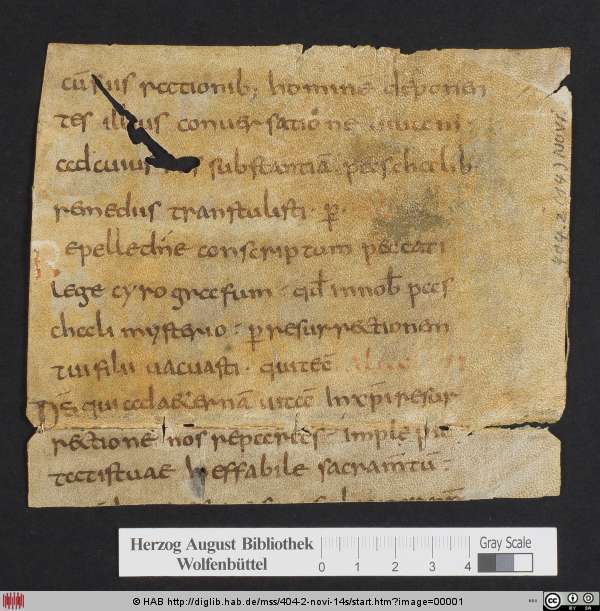 cū rsus rectionib; homine deponen
tes illius conuersatione uiuem
ad cuius substantiā paschalib
remediis transtulisti · p̱ ·
epelle dn̄e conscriptum peccati
lege cyrografum · qd̄ in nob̄ pas
chali mysterio · p̱ resurrectionem
tui filii uacuasti · qui tec̄
Dē qui ad aeternā uitā in xp̄i resur
rectione nos reparas · imple pie
tatis tuae ineffabile sacram̄tū ·
404.2 (14) NOVI
Herzog August Bibliothek
Wolfenbüttel
0 1 2 3 4
Gray Scale
© HAB http://diglib.hab.de/mss/404-2-novi-14s/start.htm?image=00001
BY SA